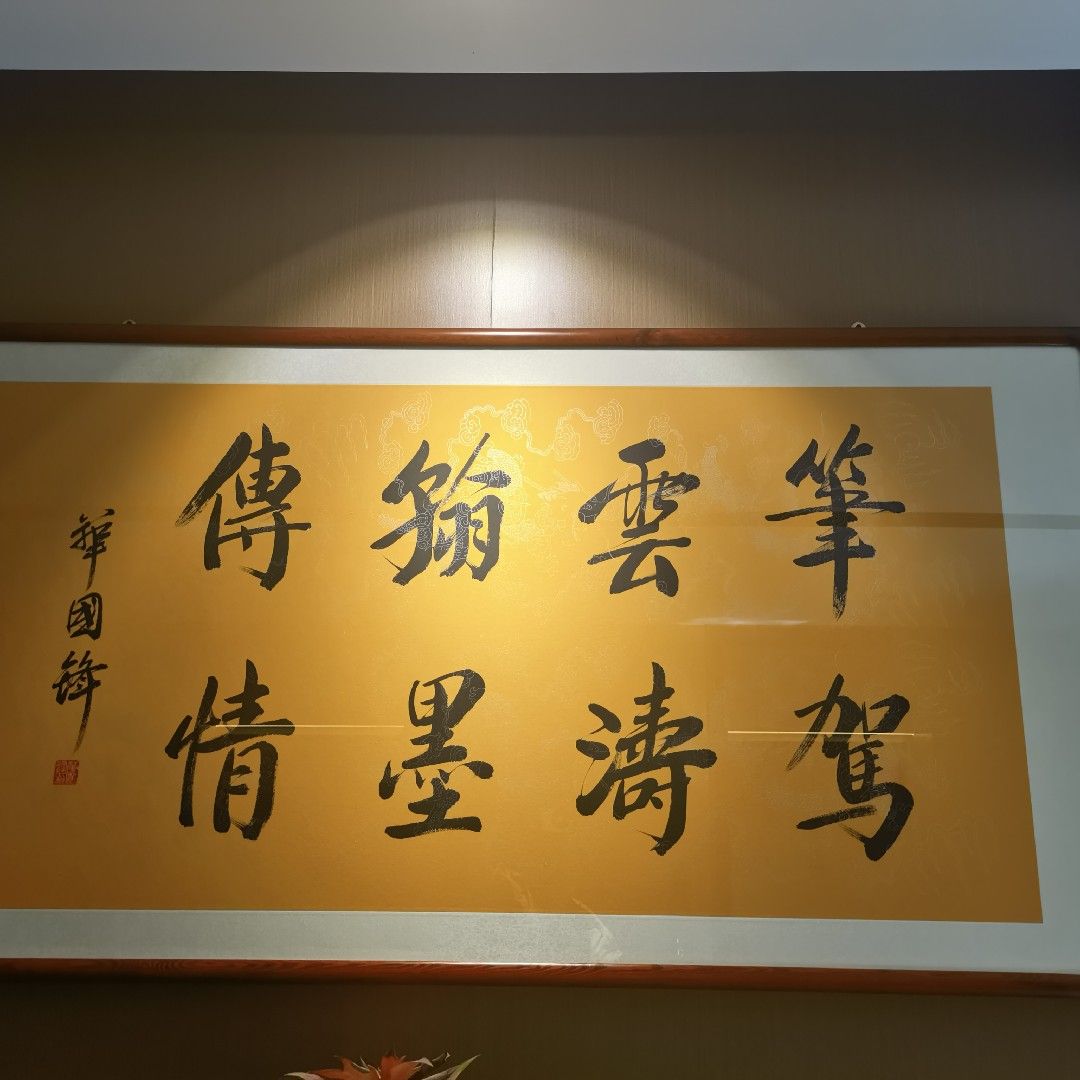 筆駕
雲濤
翰墨
傳情
華國鋒